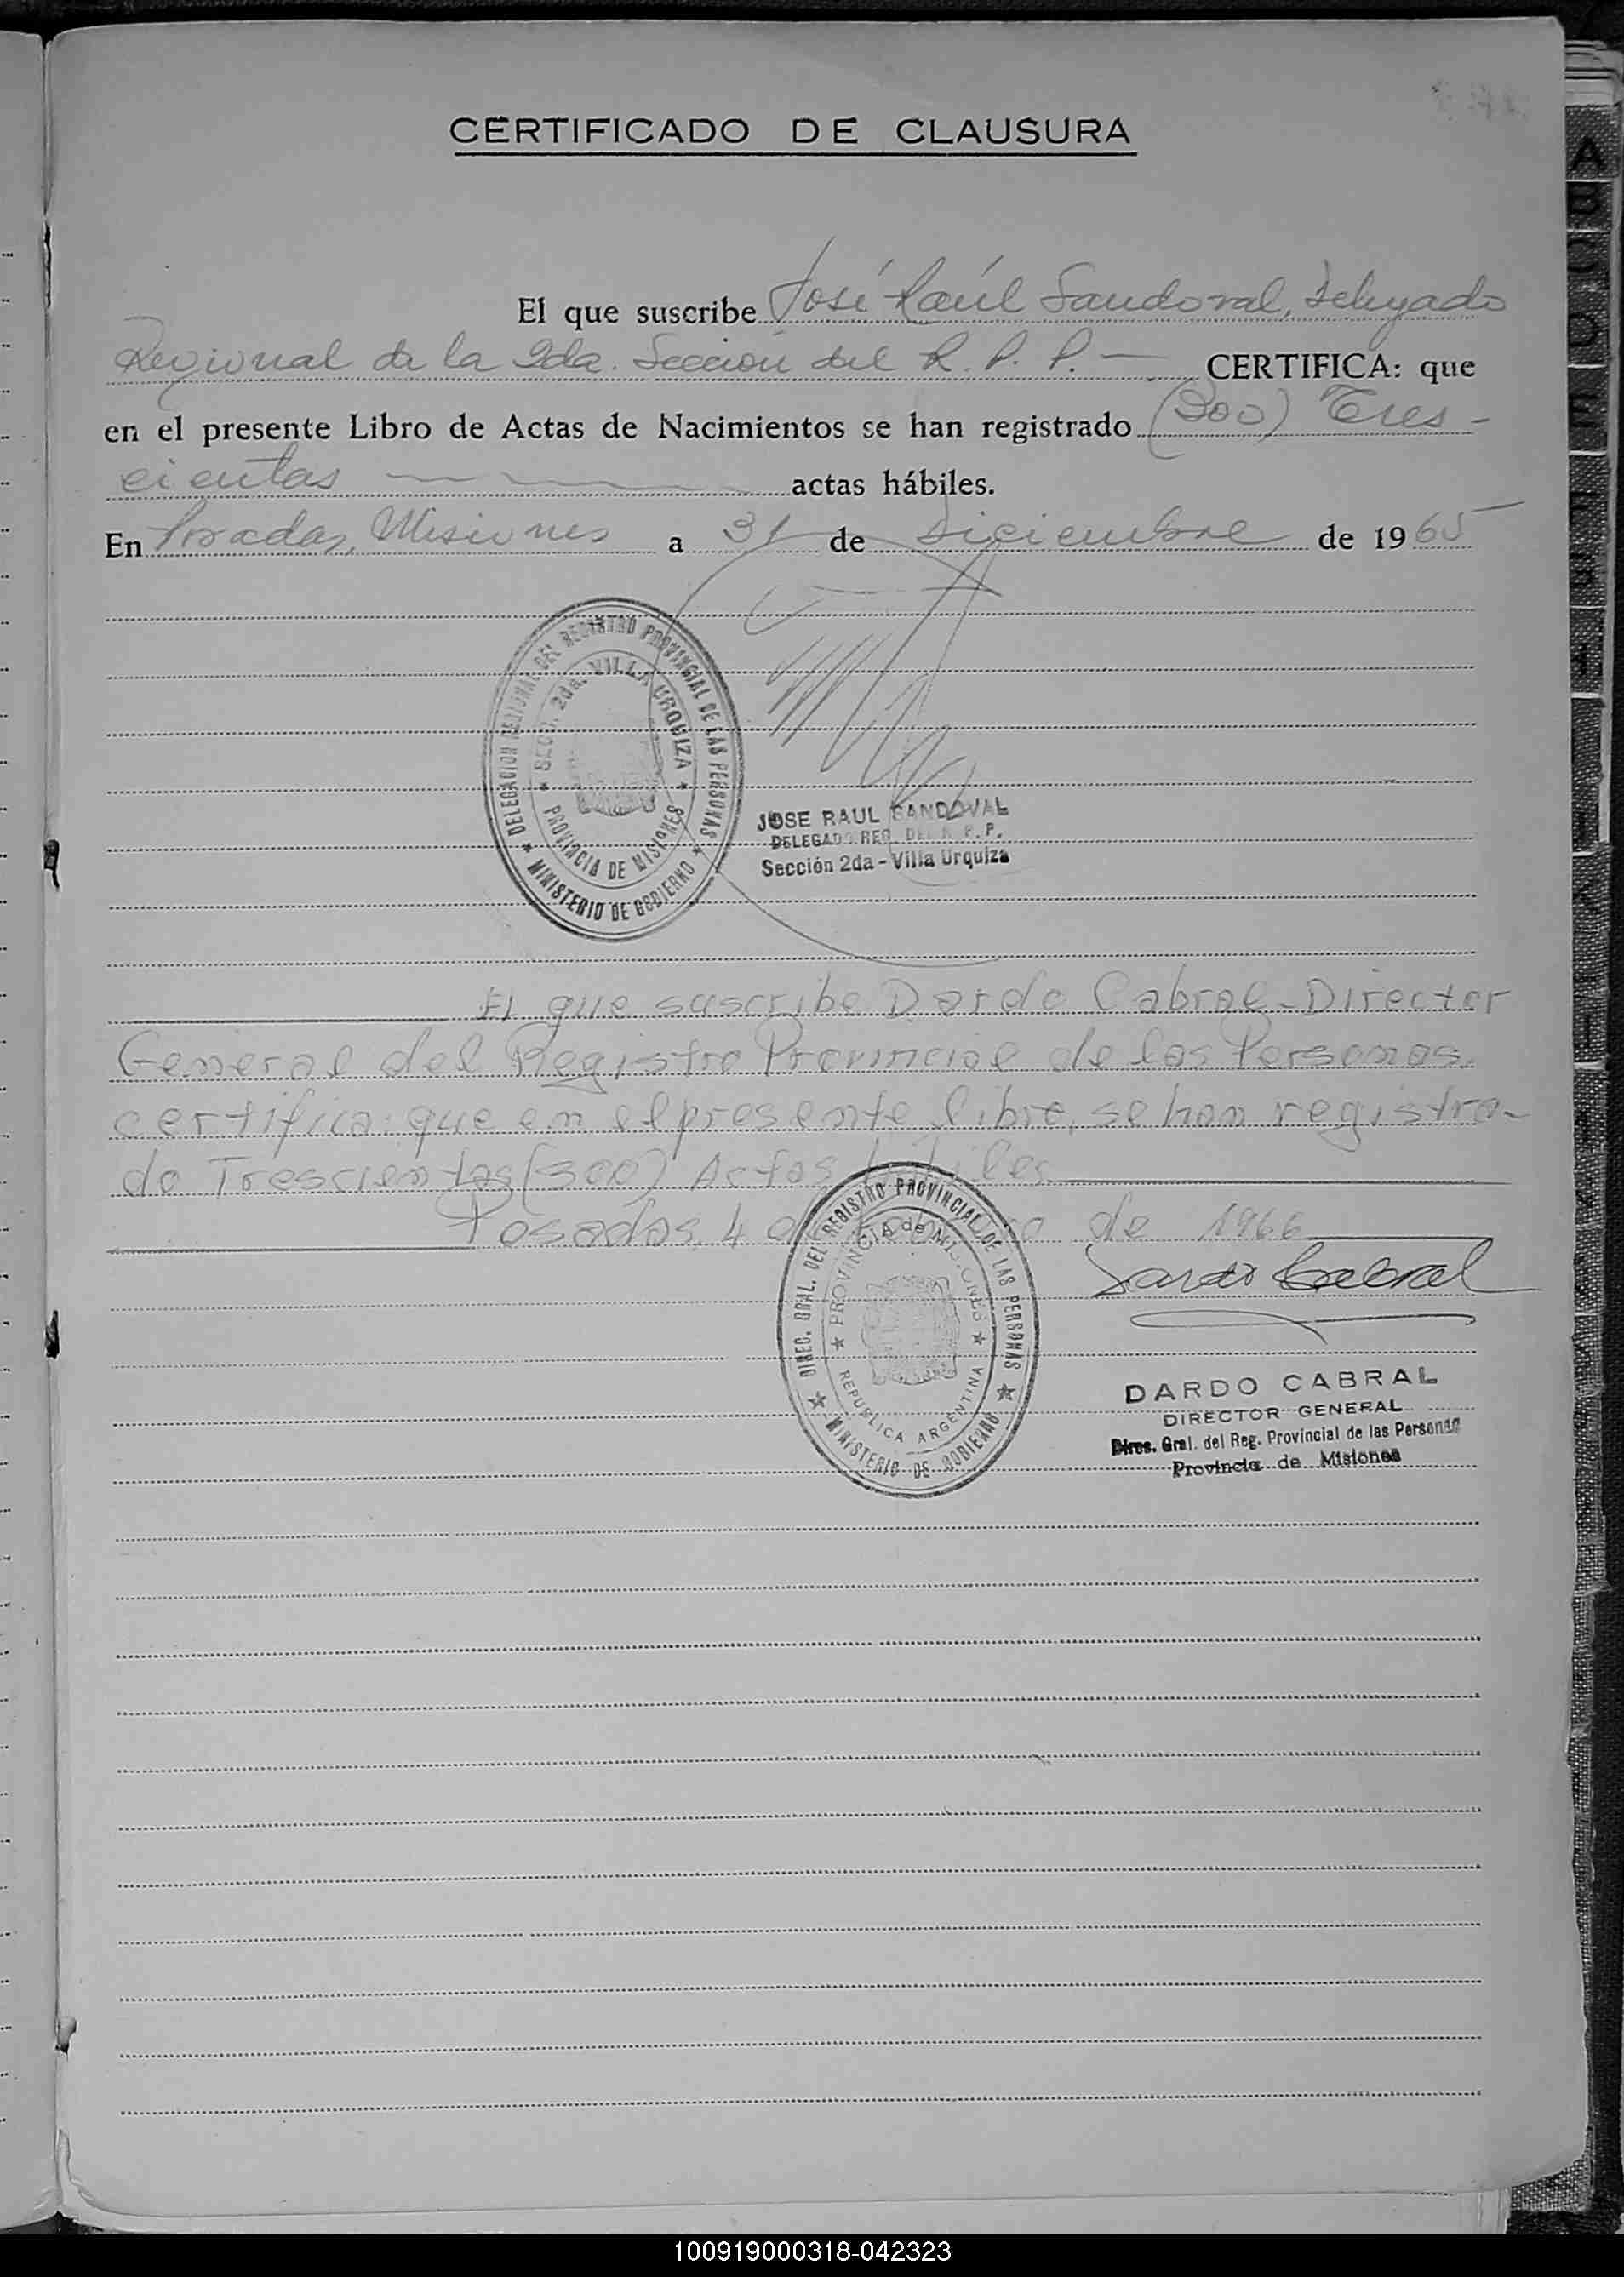 CERTIFICADO DE CLAUSURA
El que suscribe José Raúl Sandoval, Delegado
Regional de la 2da. Sección del R. P. P. — CERTIFICA: que
en el presente Libro de Actas de Nacimientos se han registrado (300) Tres-
cientas actas hábiles.
En Posadas, Misiones a 31 de Diciembre de 1965
DELEGACION REGIONAL DEL REGISTRO PROVINCIAL DE LAS PERSONAS
SECC. 2da. VILLA URQUIZA
PROVINCIA DE MISIONES
MINISTERIO DE GOBIERNO
JOSE RAUL SANDOVAL
DELEGADO REG. DEL R. P. P.
Sección 2da - Villa Urquiza
El que suscribe Dardo Cabral - Director
General del Registro Provincial de las Personas.
certifica: que en el presente libro, se han registra-
do Trescientas (300) Actas hábiles
Posadas, 4 de de 1966
Dardo Cabral
DIREC. GRAL. DEL REGISTRO PROVINCIAL DE LAS PERSONAS
PROVINCIA de MISIONES
REPUBLICA ARGENTINA
MINISTERIO DE GOBIERNO
DARDO CABRAL
DIRECTOR GENERAL
Direc. Gral. del Reg. Provincial de las Personas
Provincia de Misiones
A
B
C
D
E
F
100919000318-042323